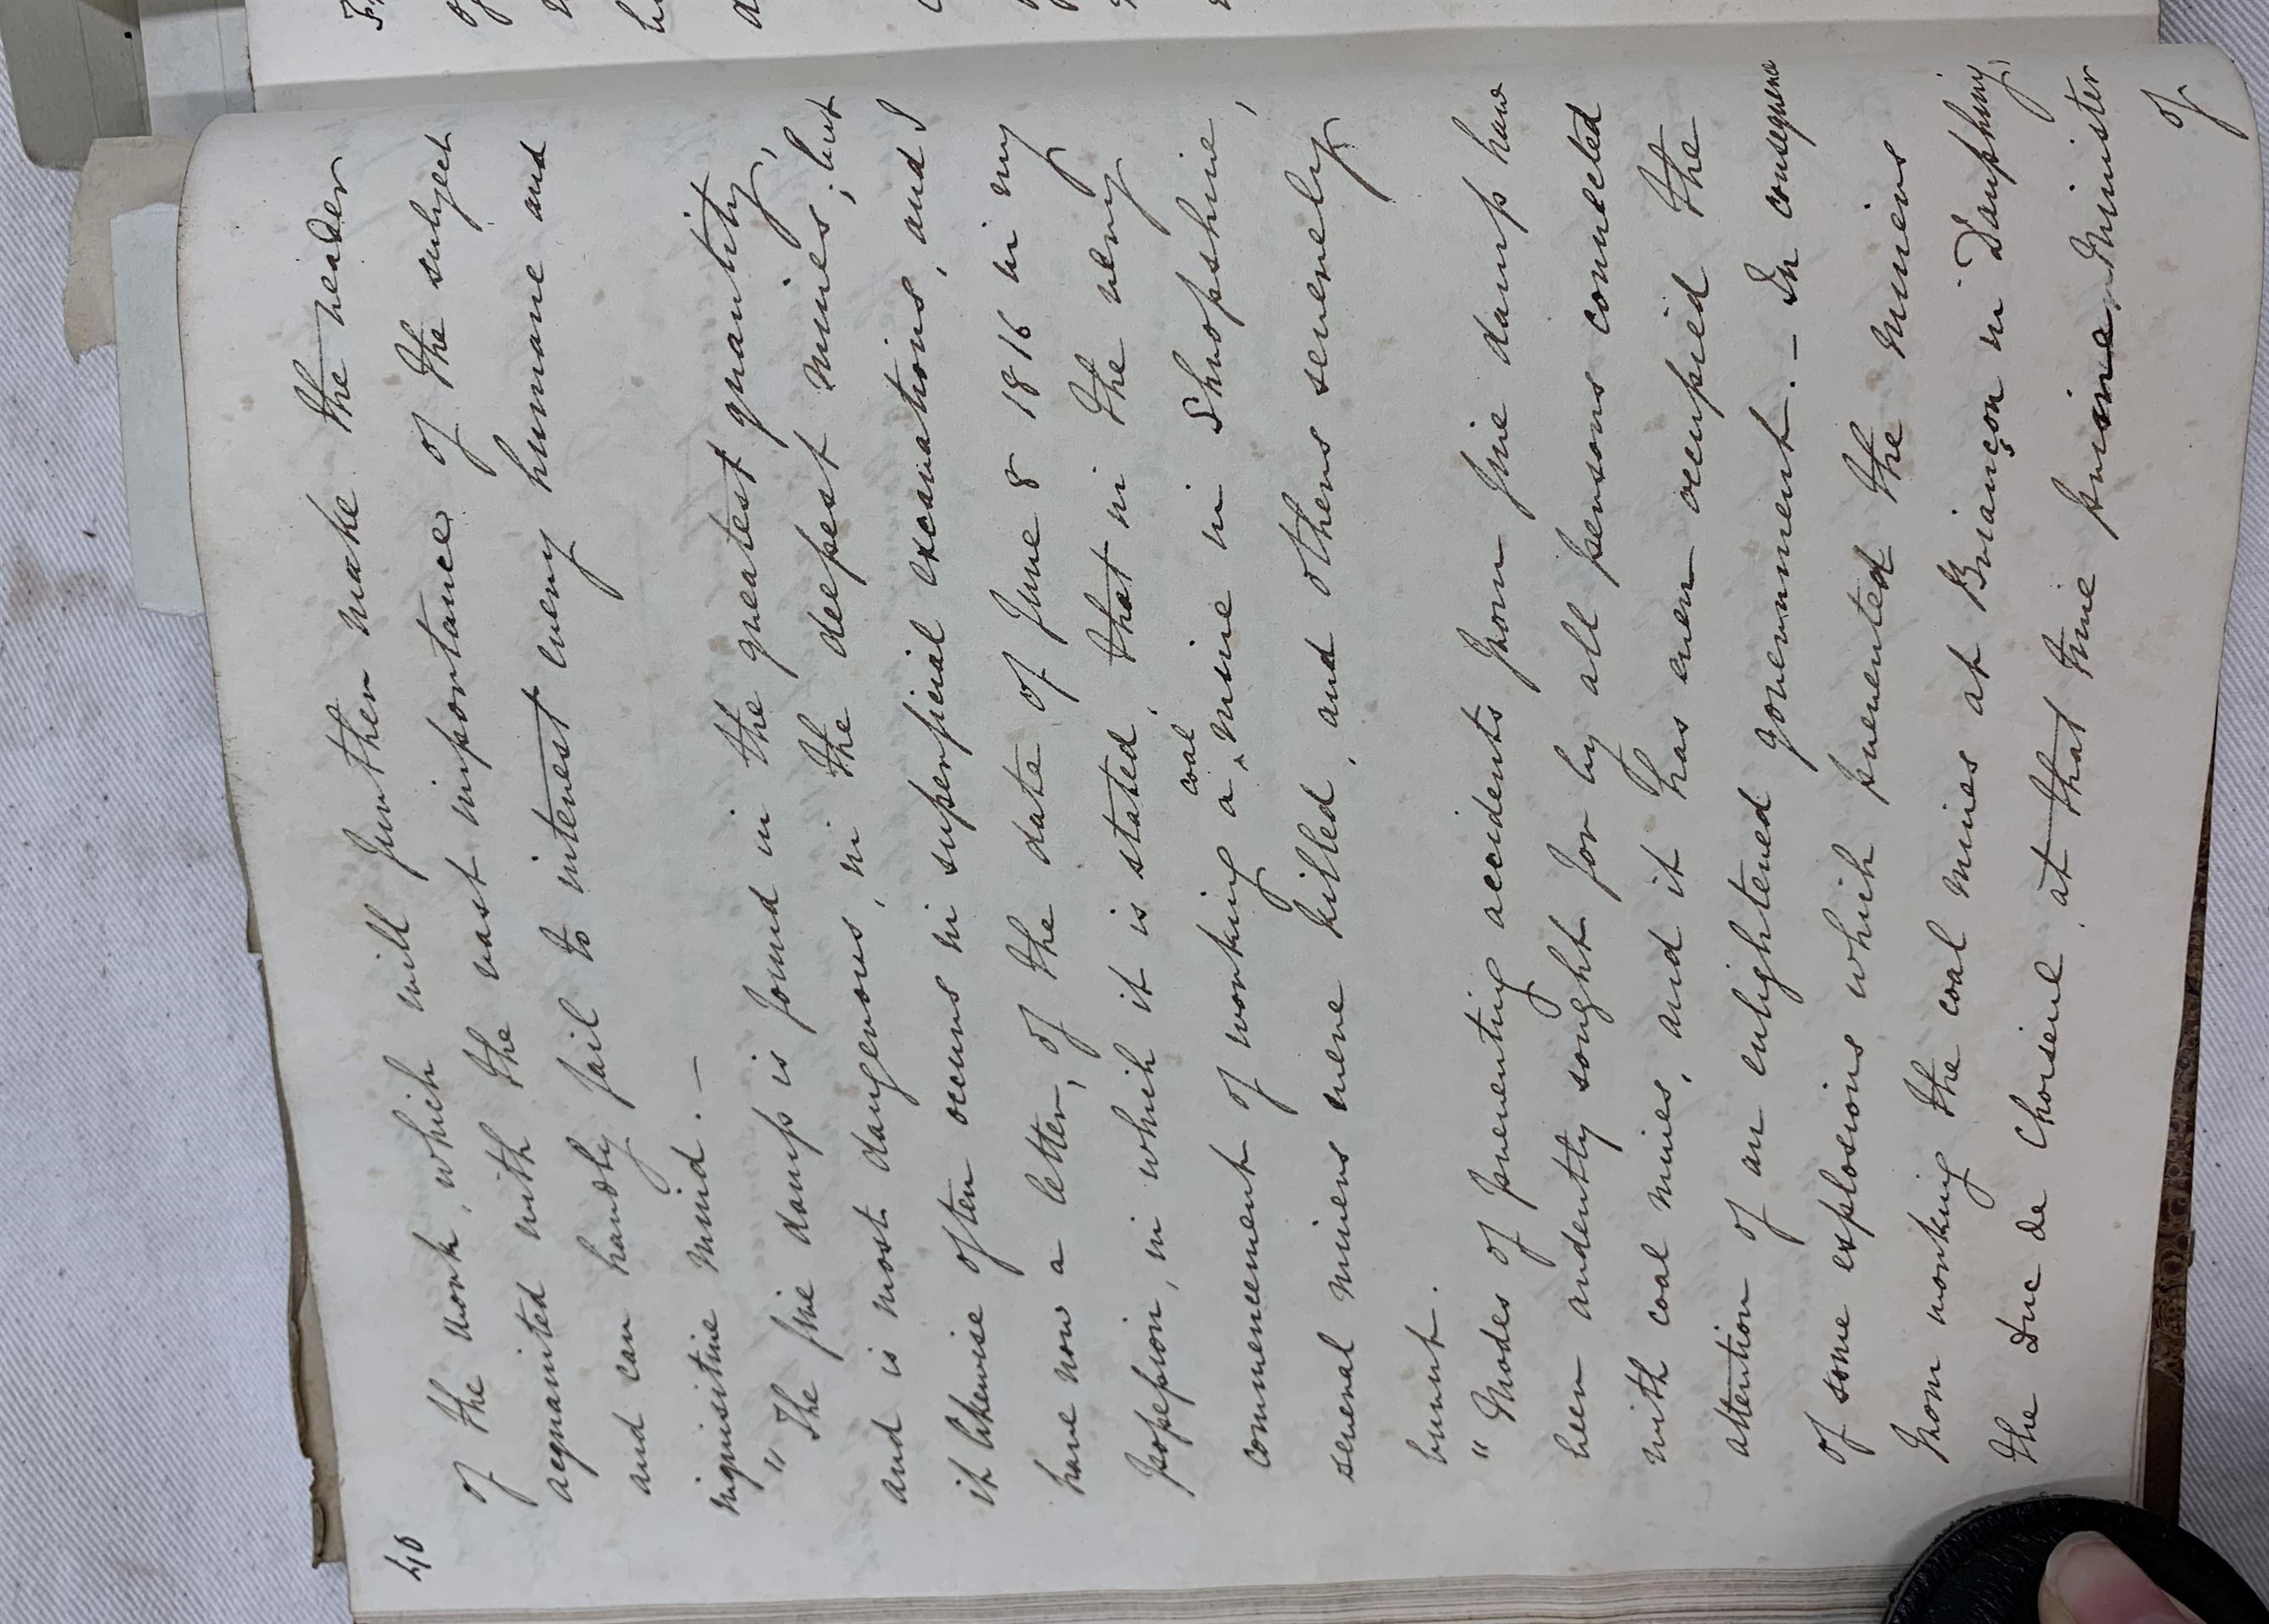 40
of the work, which will further make the reader
acquainted with the vast importance of the subject
and can hardly fail to interest every humane and
inquisitive mind. —
" The fire damp is found in the greatest quantity,
and is most dangerous, in the deepest mines; but
it likewise often occurs in superficial excavations, and I
have now a letter, of the date of June 8 1816 in my
possession, in which it is stated, that in the very
commencement of working a coal mine in Shropshire,
several miners were killed, and others severely
burnt.
" Modes of preventing accidents from fire damp have
been ardently sought for by all persons connected
with coal mines, and it has even occupied the
attention of an enlightened government. — In consequence
of some explosions which prevented the miners
from working the coal mines at Briançon in Dauphiny,
the Duc de Choiseul, at that time prime Minister
of